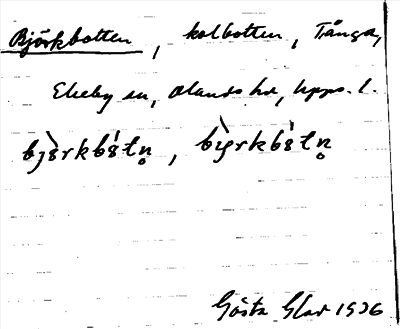 Björkbotten, kolbotten, Tånga,
Ekeby sn, Olands hd, Upps. l.
bjὸ̈rkbótn̥, bìyrkbótn̥
Gösta Glar 1936